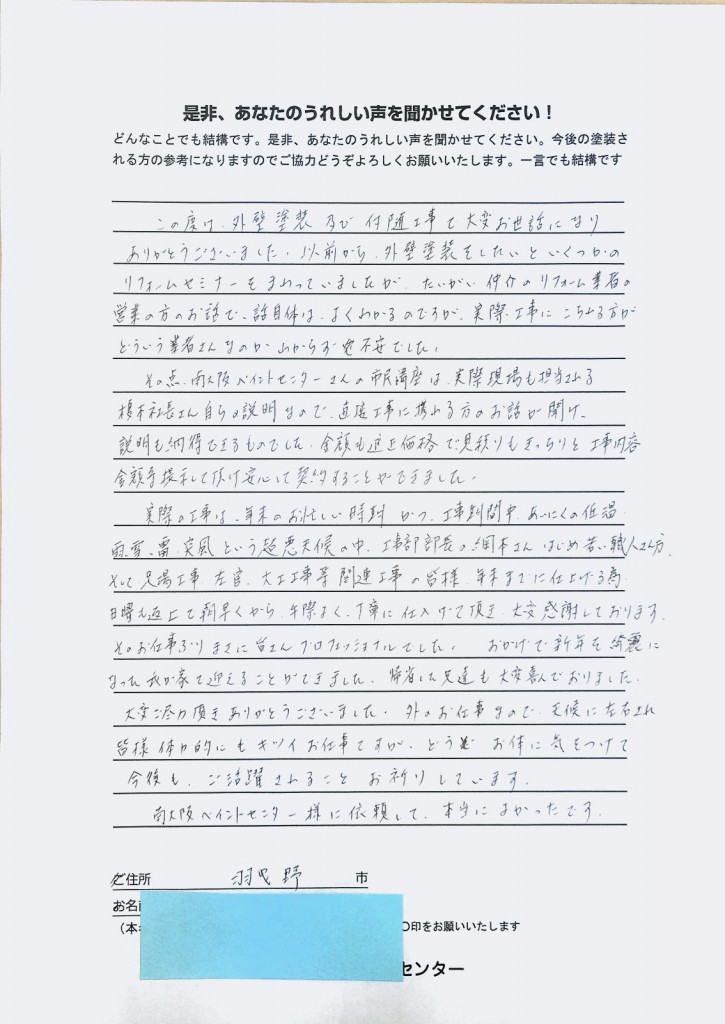 是非、あなたのうれしい声を聞かせてください！
どんなことでも結構です。是非、あなたのうれしい声を聞かせてください。今後の塗装さ
れる方の参考になりますのでご協力どうぞよろしくお願いいたします。一言でも結構です
この度は、外壁塗装 及び 付随工事で大変お世話になり
ありがとうございました。以前から、外壁塗装をしたいといくつかの
リフォームセミナーをまわっていましたが、たいがい仲介のリフォーム業者の
営業の方のお話で、話自体は、よくわかるのですが、実際、工事にこられる方が
どういう業者さんなのかわからず不安でした。
その点、南大阪ペイントセンターさんの市民講座は、実際現場も担当される
榎本社長さん自らの説明なので、直接工事に携わる方のお話が聞け、
説明も納得できるものでした。金額も適正価格で見積りもきっちりと工事内容
金額等提示して頂け安心して契約することができました。
実際の工事は、年末のお忙しい時期 かつ、工事期間中、あいにくの低温
雨、雪、雷、突風という超悪天候の中、工事部部長の細木さんはじめ若い職人さん方、
そして足場工事 左官、大工工事等関連工事の皆様、年末までに仕上げる為
日曜も返上で朝早くから、手際よく、丁寧に仕上げて頂き、大変感謝しております。
そのお仕事ぶりまさに皆さんプロフェッショナルでした。 おかげで新年を綺麗に
なった我が家で迎えることができました。帰省した兄達も大変喜んでおりました。
大変ご尽力頂きありがとうございました。外のお仕事なので、天候に左右され
皆様体力的にもキツイお仕事ですが、どうぞ お体に気をつけて
今後も、ご活躍されること お祈りしています。
南大阪ペイントセンター様に依頼して、本当によかったです。
ご住所 羽曳野 市
お名前
（本 〇印をお願いいたします
センター